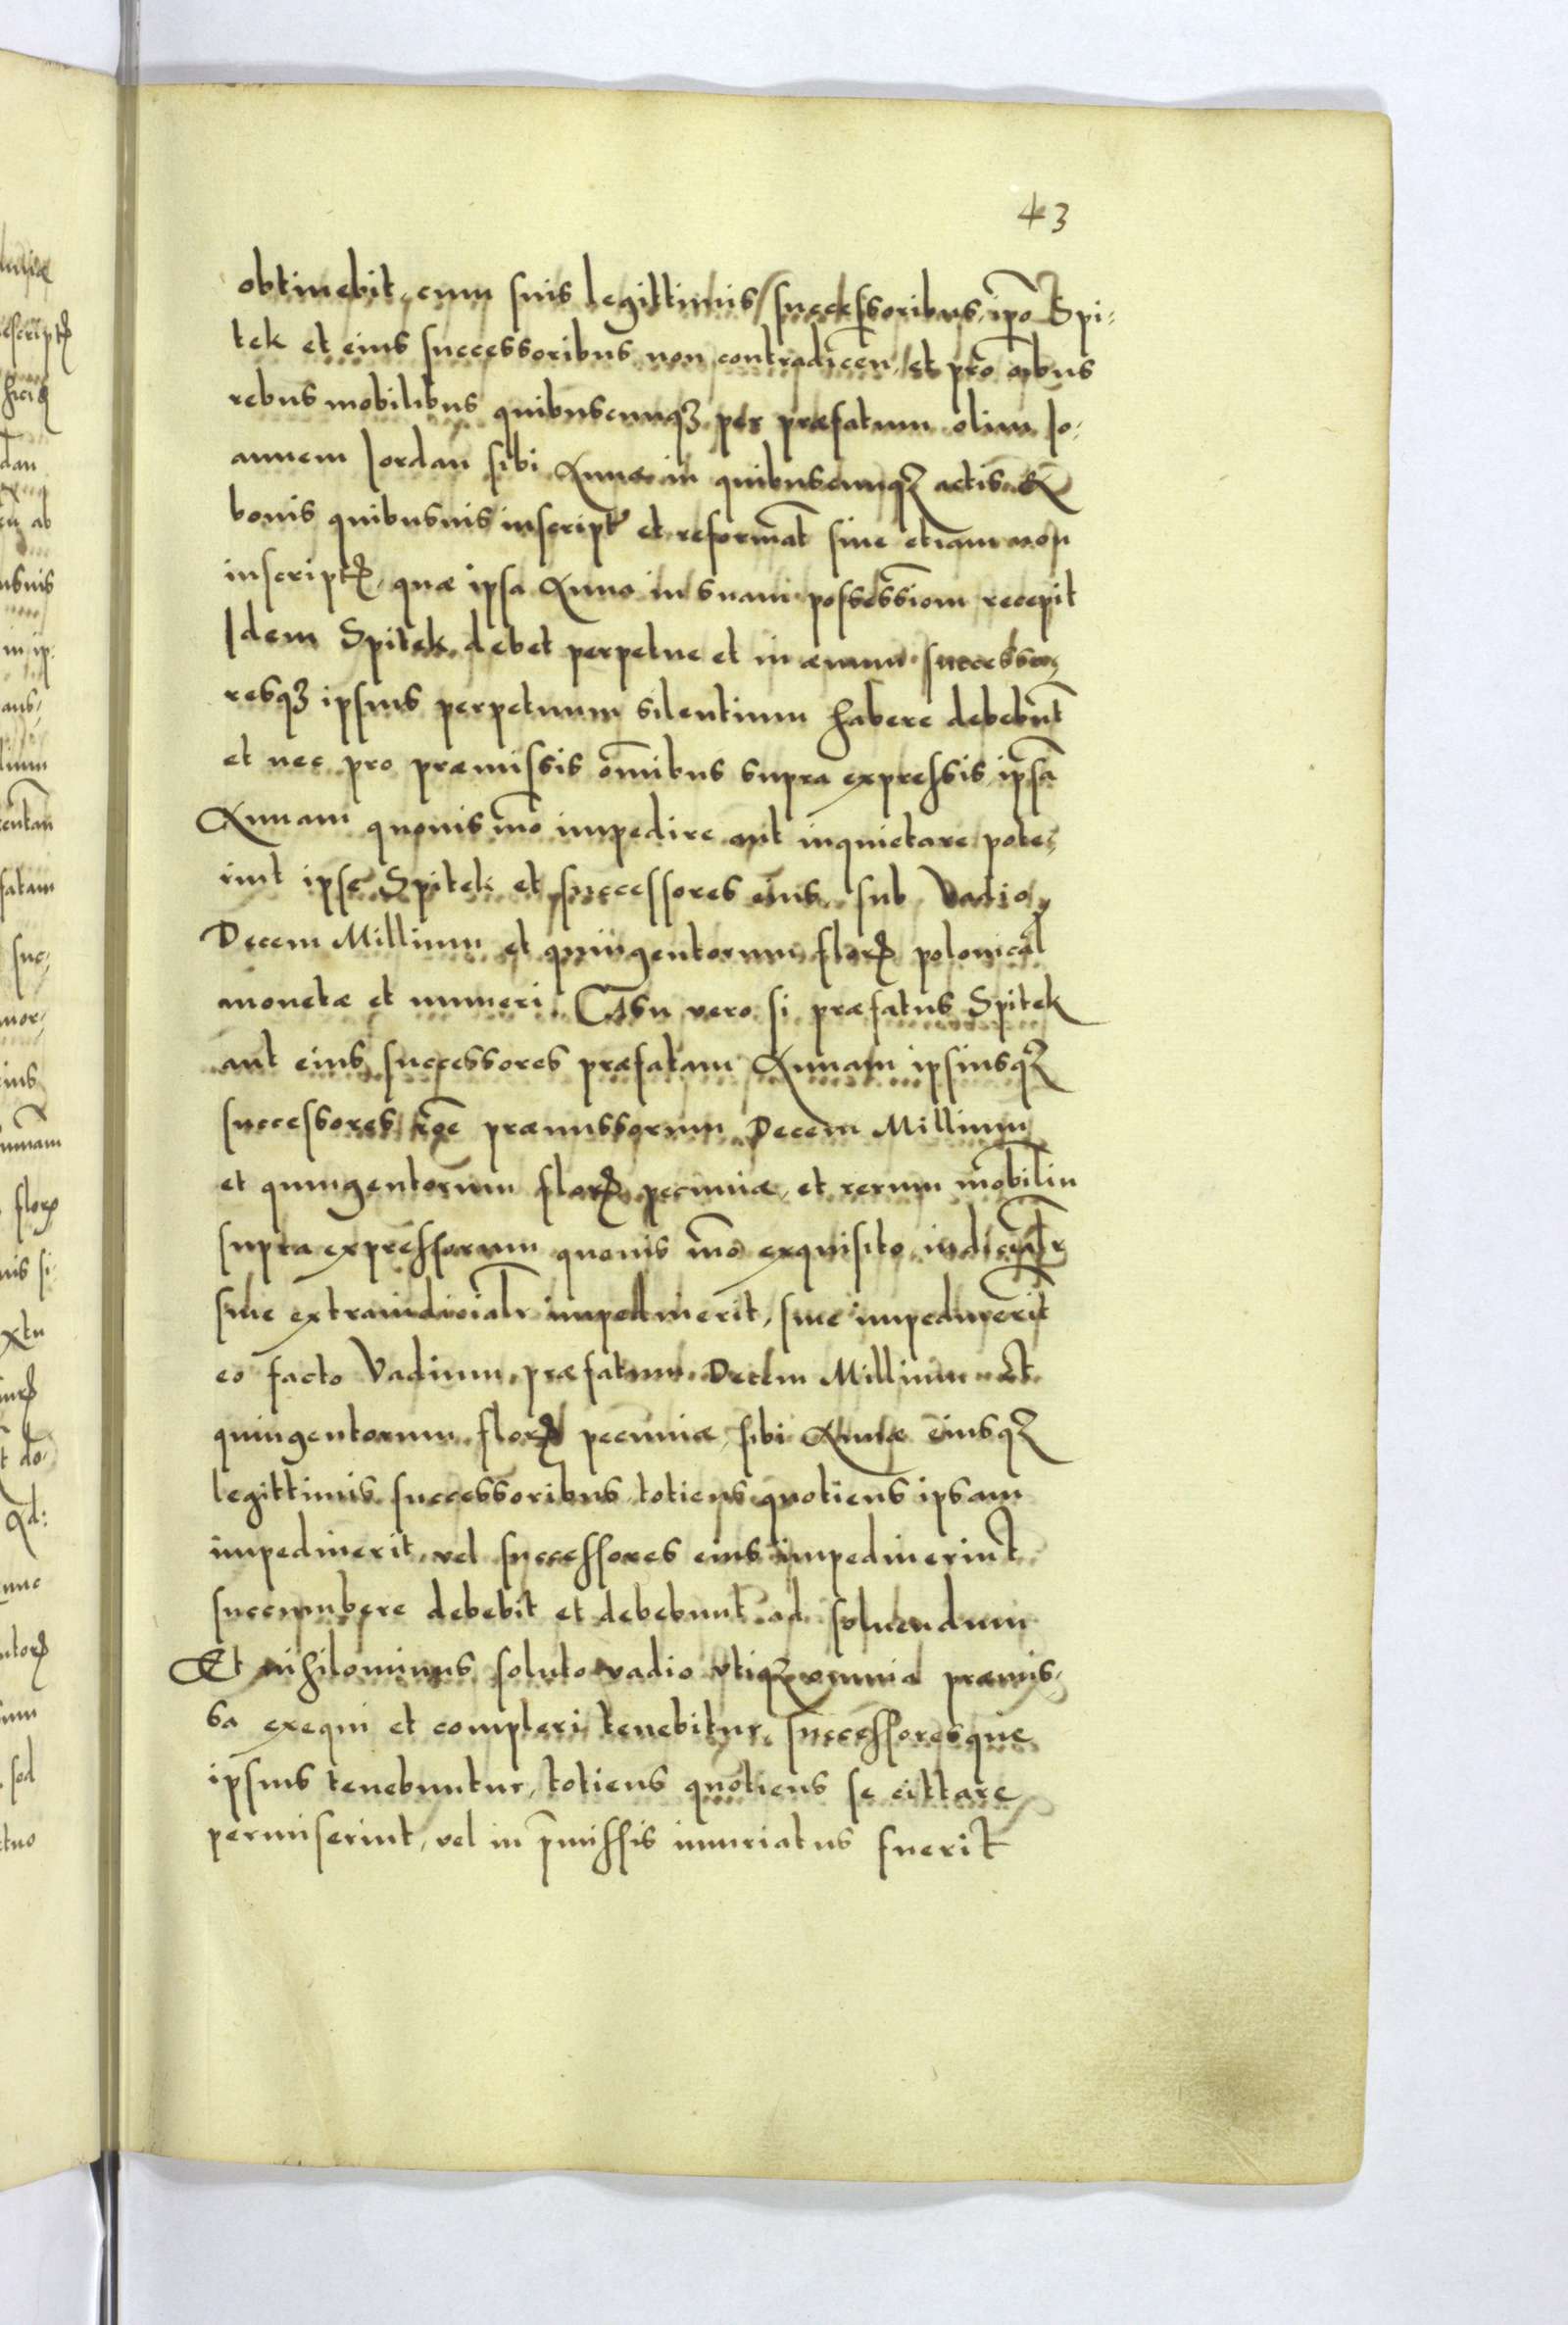 43
obtinebit, cum suis legittimis successoribus, ipō Spi-
tek et eius successoribus non contradicen̄, et pro oībus
rebus mobilibus quibuscunqȝ per præfatum olim Jo-
annem Jordan sibi Annæ in quibuscunqȝ actis et
bonis quibusuis inscript et reformat siue etiam non
inscriptꝝ, quæ ipsa Anna in suam possessiom̄ recepit
Idem Spitek debet perpetue et in æuum successo-
resqȝ ipsius perpetuum silentium habere debebūt
et nec pro præmissis om̄ibus supra expressis ipsā
Annam quouis mō impedire aut inquietare pote-
rint ipse Spitek et successores eius, sub Vadio
Decem Millium et quingentorum florꝝ polonical
monetæ et numeri. Casu vero si præfatus Spitek
aut eius successores præfatam Annam ipsiusqȝ
successores rōe præmissorum Decem Millium
et quingentorum florꝝ pecuniæ, et rerum mobiliū
supra expressorum quouis mō exquisito iudicialr
siue extraiudicialr impediuerit, siue impediuerīt
eo facto Vadium præfatum Decem Millium et
quingentorum florꝝ pecuniæ, sibi Annæ eiusqȝ
legittimis successoribus, totiens quotiens ipsam
impediuerit, vel successores eius impediuerint
succumbere debebit et debebunt ad soluendum
Et nihilominus soluto vadio vtiqȝ omnia præmis-
sa exequi et compleri tenebitur, successoresque
ipsius tenebuntur, totiens quotiens se cittare
permiserint, vel in p̄missis iniuriatus fuerit